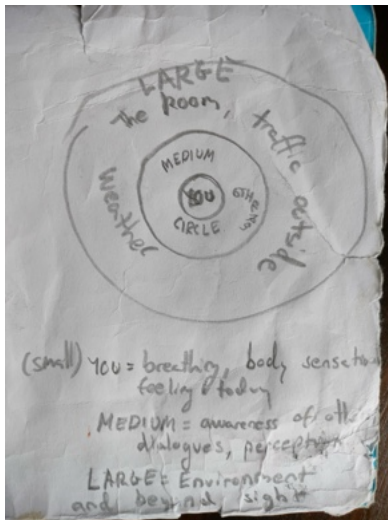 LARGE
The Room,
traffic outside
weather
MEDIUM
YOU
CIRCLE
(small) YOU = breathing, body sensation
feeling today
MEDIUM = awareness of
dialogues, perception
LARGE = Environment
and beyond sight